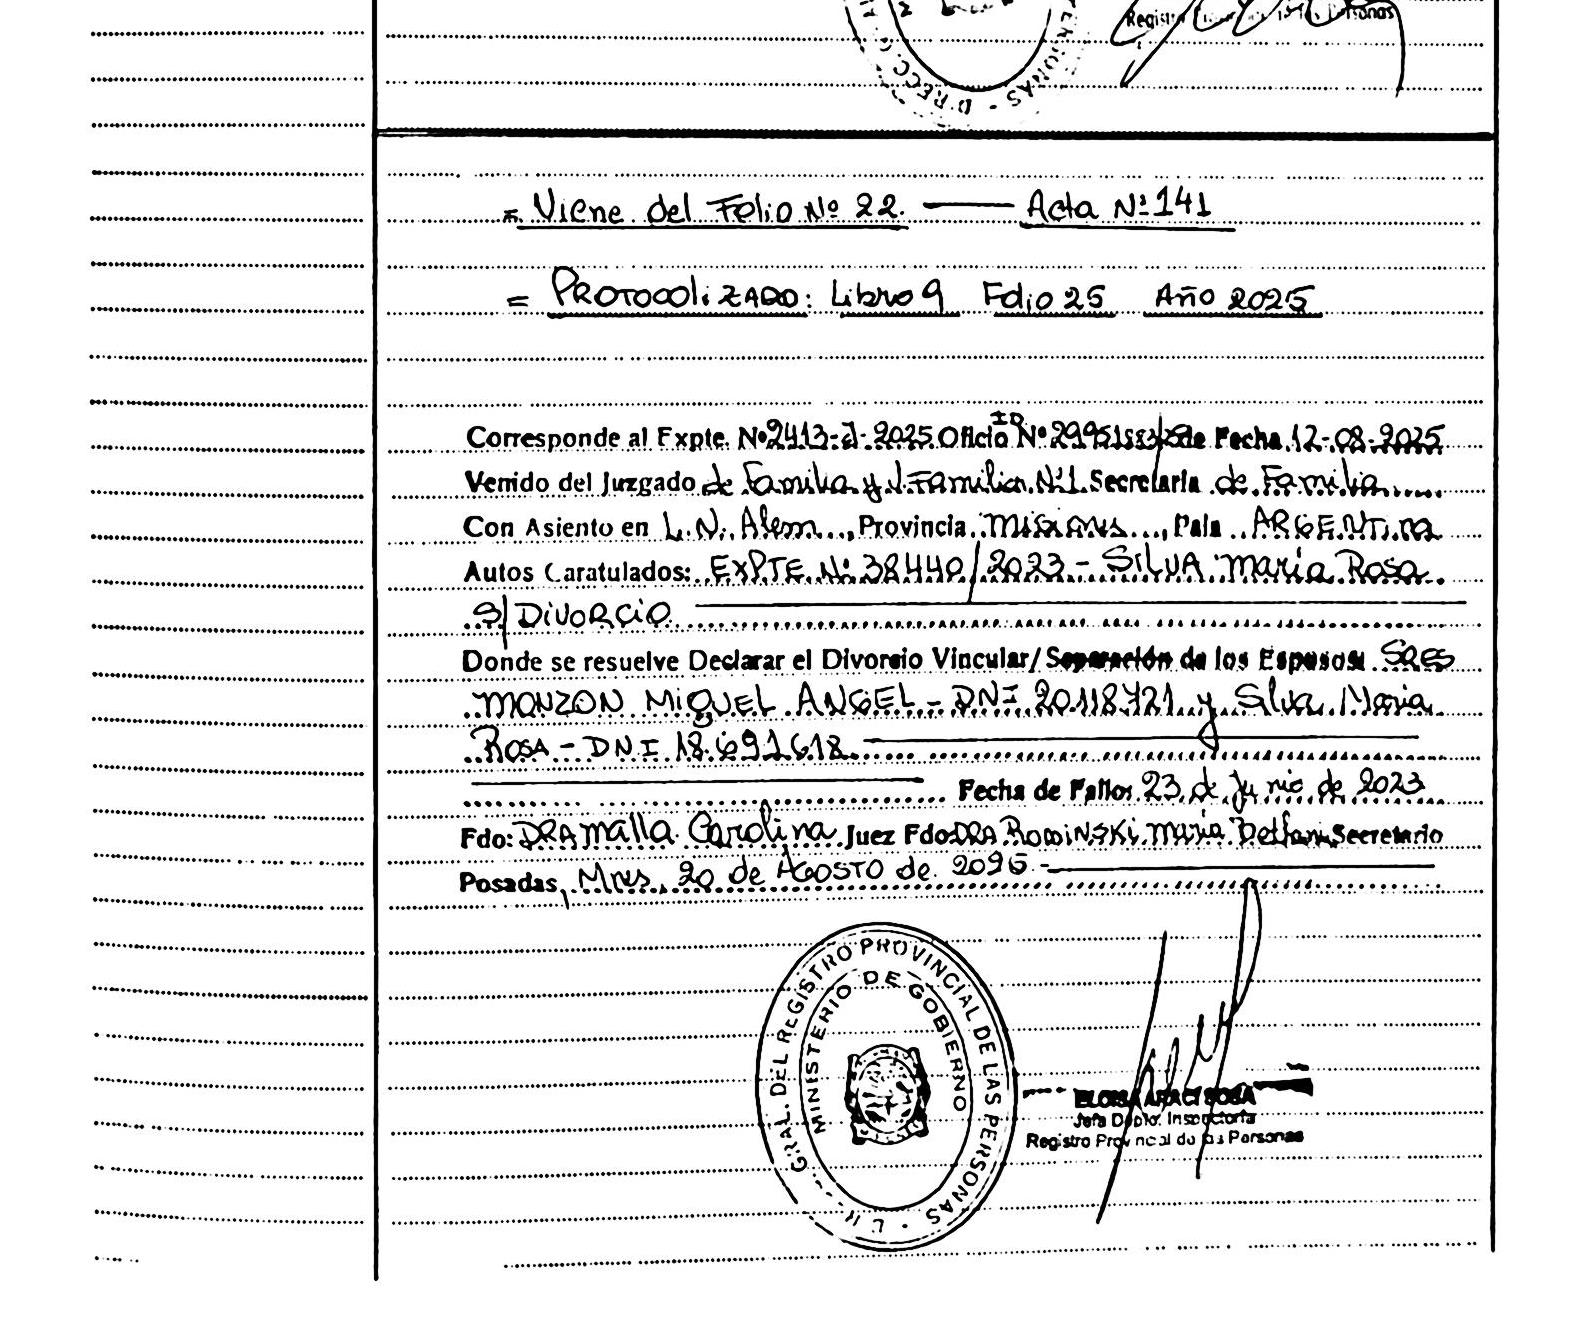 Registro Provincial de las Personas
= Viene del Folio Nº 22. — Acta Nº 141
= PROTOCOLIZADO: Libro 9 Folio 25 Año 2025
Corresponde al Expte. Nº 2413-J-2025 Oficio ID Nº de Fecha 12-08-2025
Venido del Juzgado de Familia y V. Familiar Nº 1 Secretaría de Familia
Con Asiento en L.N. Alem, Provincia Misiones, País ARGENTINA
Autos Caratulados: EXPTE Nº 38440/2023 - SILVA María Rosa
S/ DIVORCIO
Donde se resuelve Declarar el Divorcio Vincular/ Separación de los Esposos: SRES
MONZON MIGUEL ANGEL - DNI 20.118.721 y Silva Maria
ROSA - DNI 18.691.618
Fecha de Fallo: 23 de Junio de 2023
Fdo: DRA Malla Carolina Juez Fdo: DRA Maria Secretario
Posadas, Mnes, 20 de AGOSTO de 2025 -
GRAL. DEL REGISTRO PROVINCIAL DE LAS PERSONAS
MINISTERIO DE GOBIERNO
ELOISA ARACI SOSA
Jefa Dpto. Inspectoría
Registro Provincial de las Personas